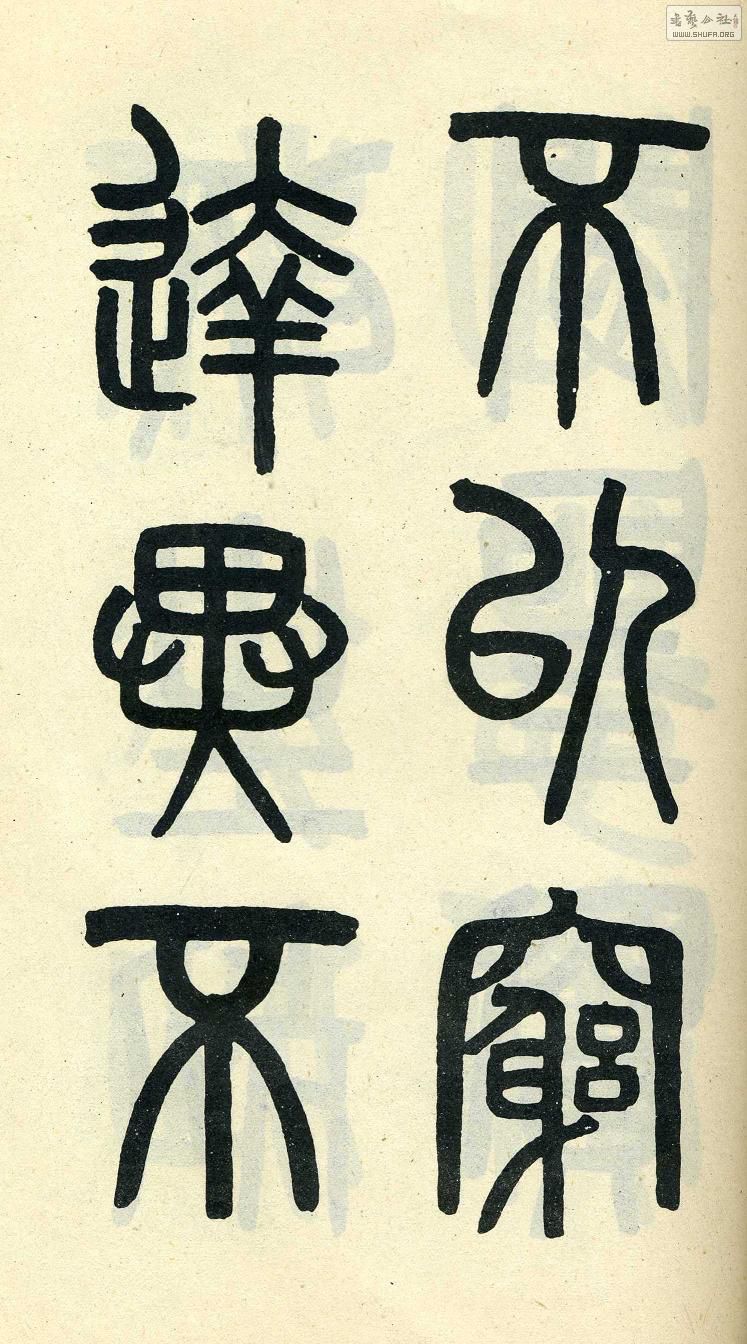 不以窮
達異不
書藝公社
WWW.SHUFA.ORG